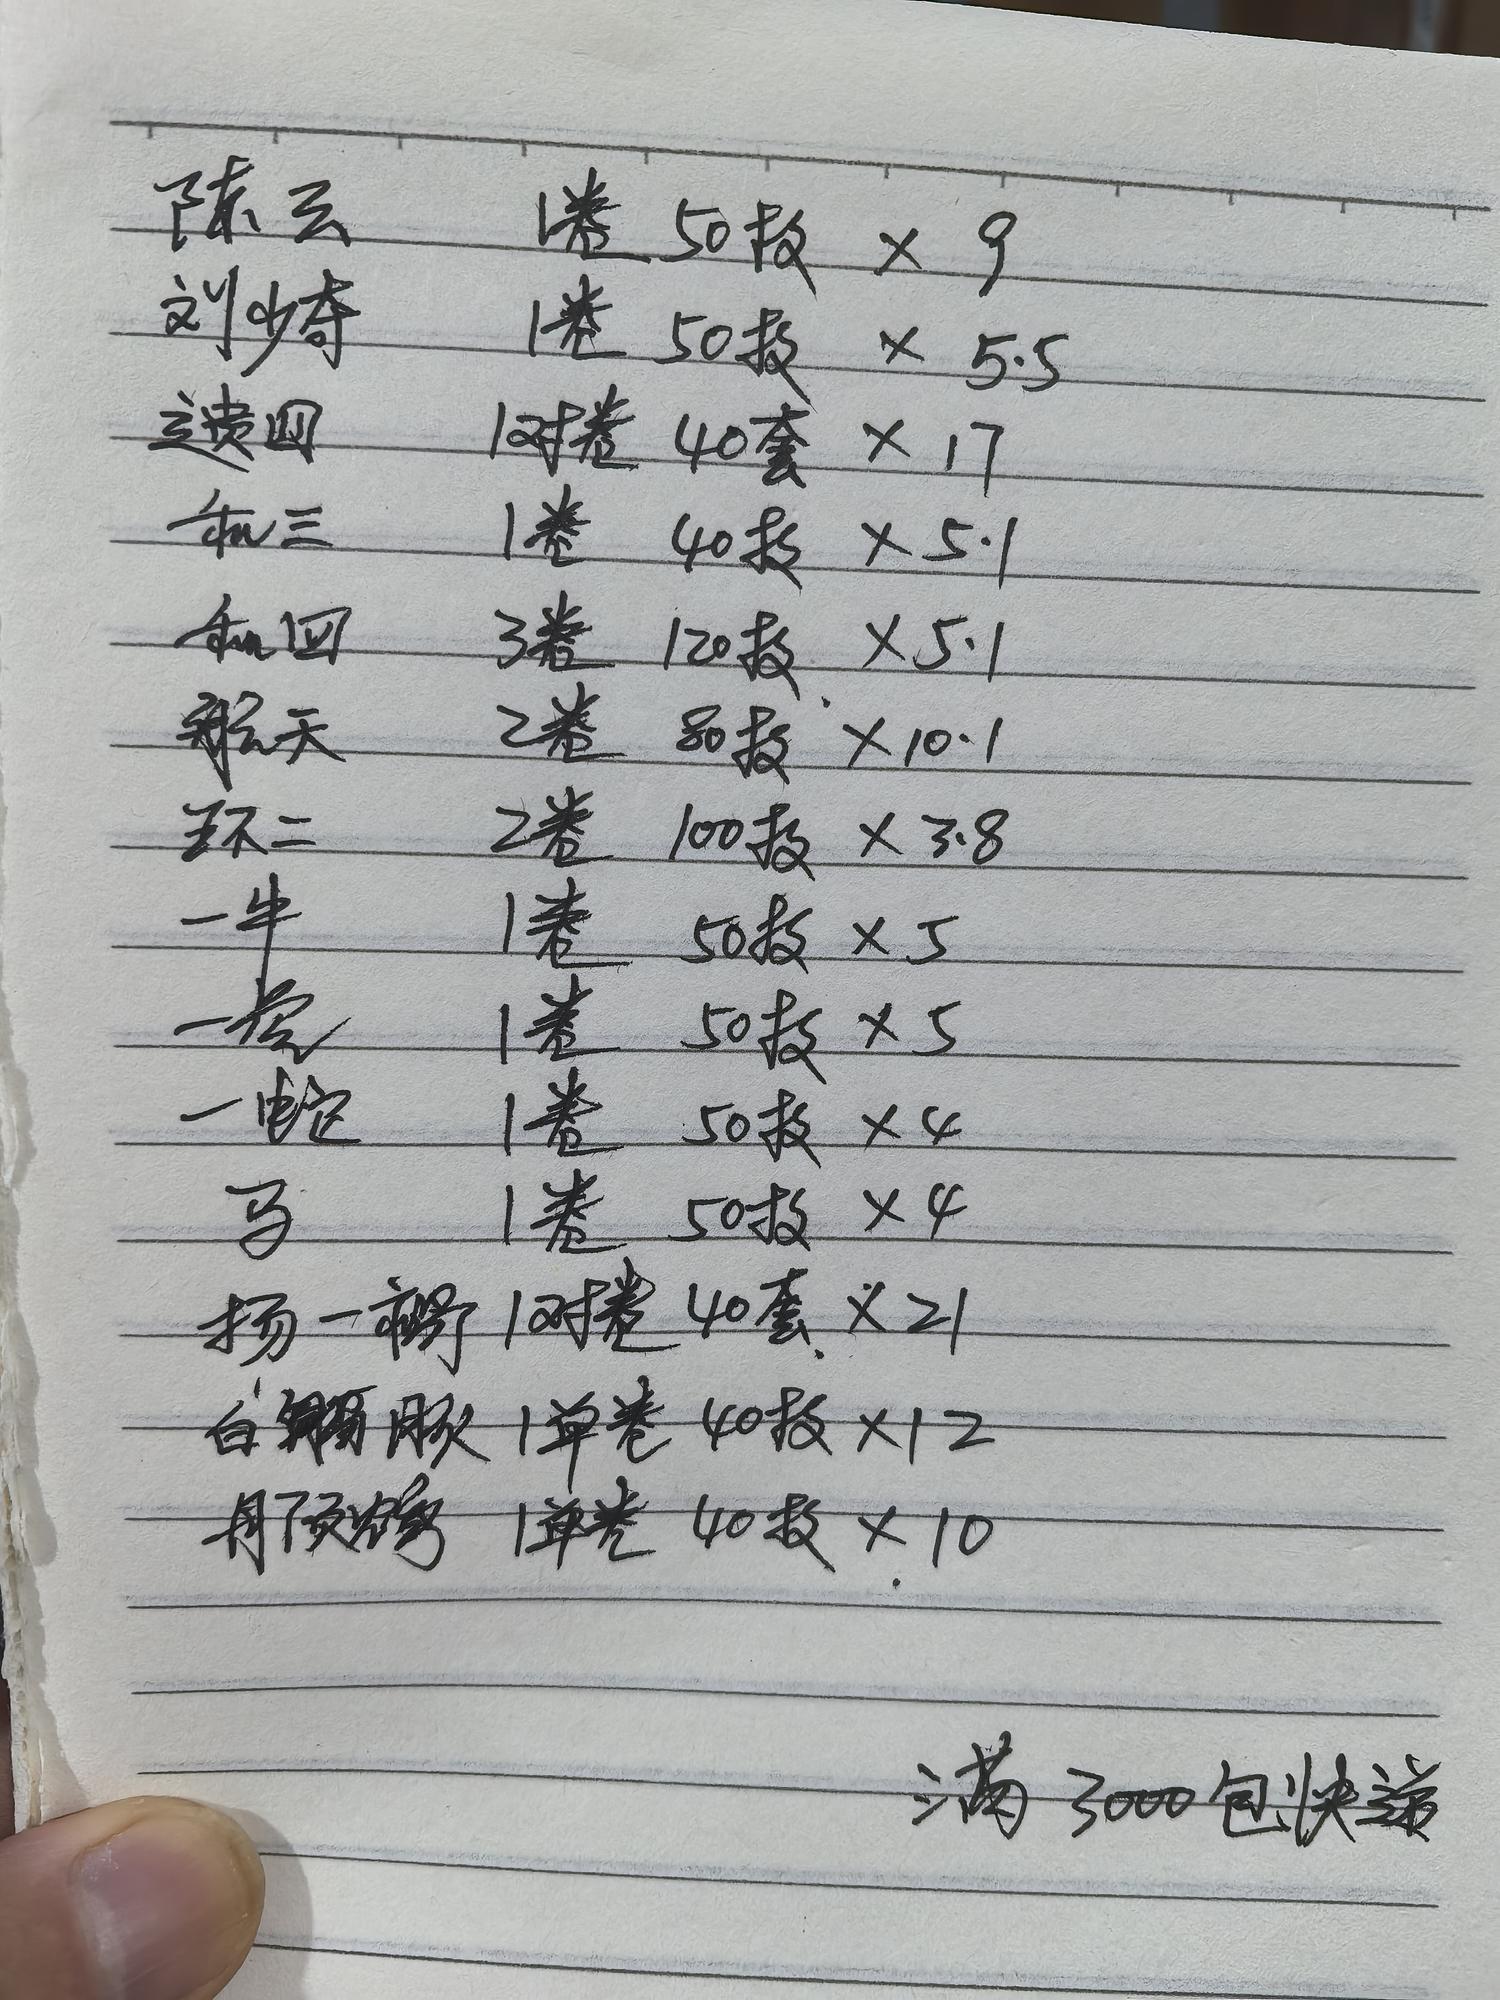 陈云 1卷 50枚 × 9
刘少奇 1卷 50枚 × 5.5
遗四 1对卷 40套 × 17
和三 1卷 40枚 × 5.1
和四 3卷 120枚 × 5.1
航天 2卷 80枚 × 10.1
环二 2卷 100枚 × 3.8
一牛 1卷 50枚 × 5
一虎 1卷 50枚 × 5
一蛇 1卷 50枚 × 4
马 1卷 50枚 × 4
扬一 1对卷 40套 × 21
白鳍豚 1单卷 40枚 × 12
丹顶鹤 1单卷 40枚 × 10
满3000包快递